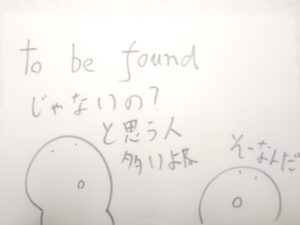 to be found
じゃないの?
と思う人
多いよね
そーなんだ